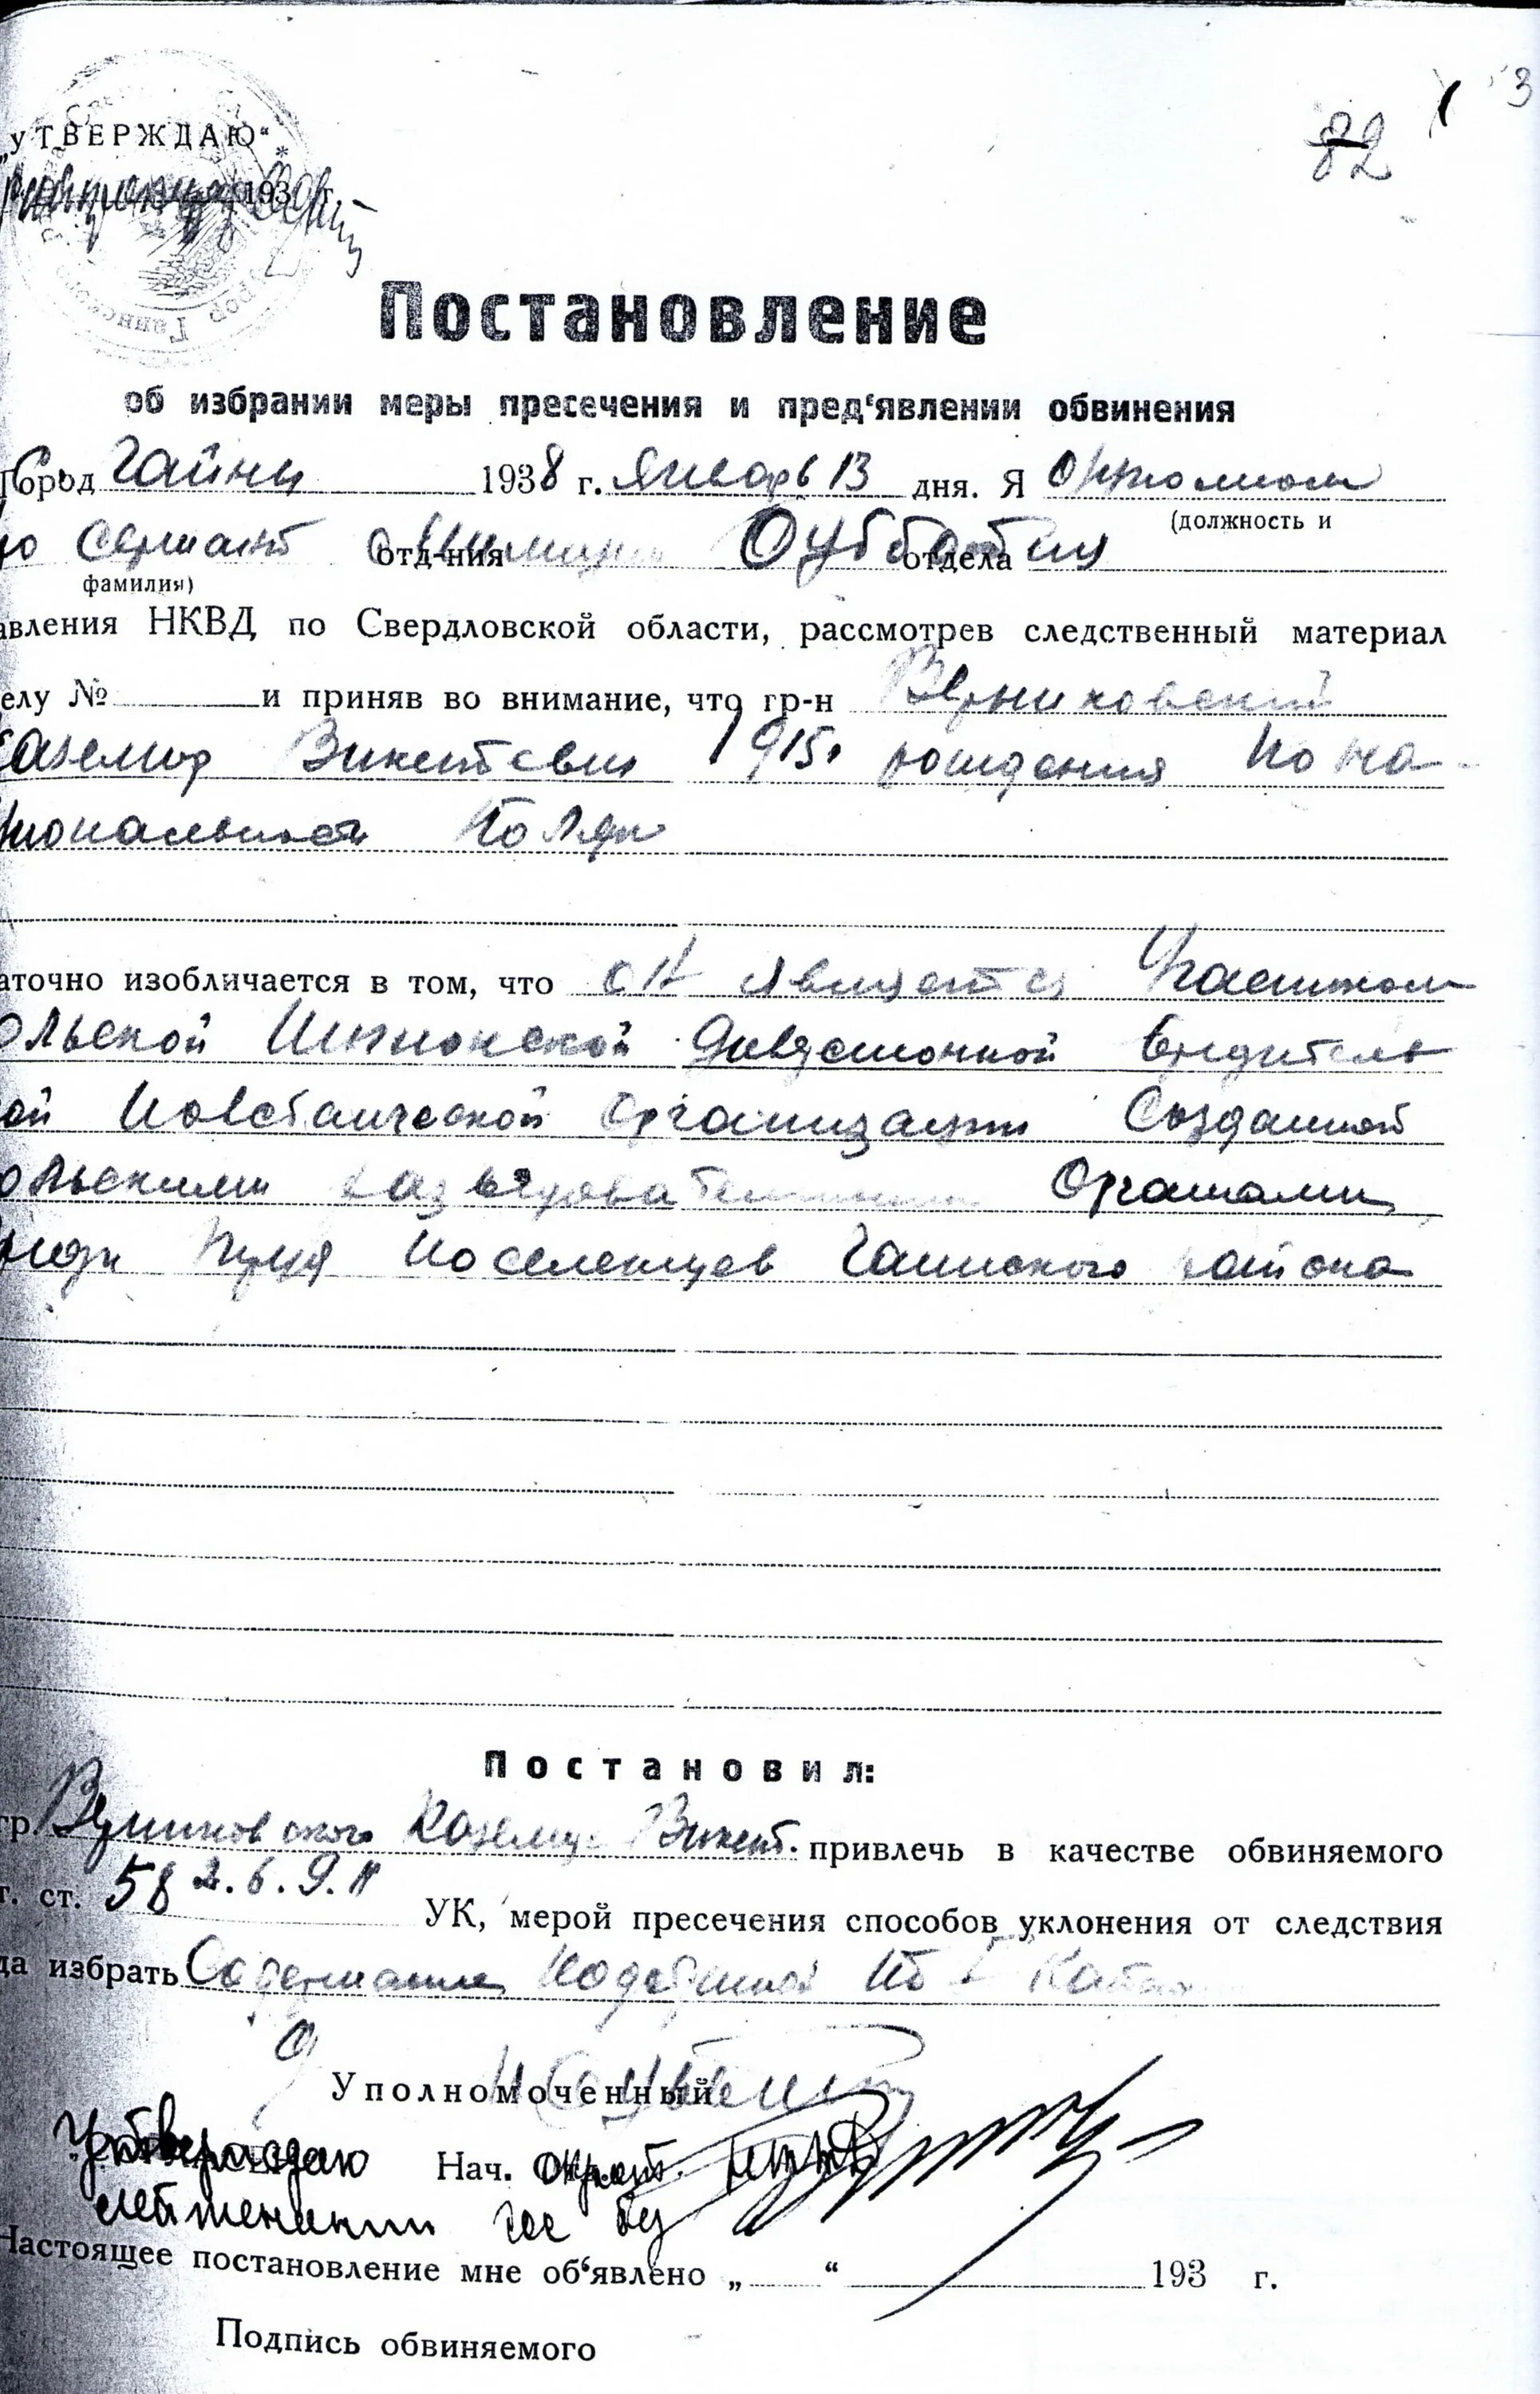 „УТВЕРЖДАЮ“
193 г.
82
3
Постановление
об избрании меры пресечения и пред‘явлении обвинения
Город Гайны 1938 г. Январь 13 дня. Я
(должность и
сержант отд-ния отдела
фамилия)
авления НКВД по Свердловской области, рассмотрев следственный материал
елу № и приняв во внимание, что гр-н Верниковский
Каземир Викентевич 1915г рождения по на-
циональности Поляк
аточно изобличается в том, что он является Участником
ольской Шпионской Диверсионной Вредитель
ой Повстанческой Организации Созданной
ольскими разведовательными Органами
среди поселенцев Гаинского района
Постановил:
гр. Верниковского Каземир Викент. привлечь в качестве обвиняемого
т. ст. 58 2.6.9.11 УК, мерой пресечения способов уклонения от следствия
да избрать Содержание под стражей
Уполномоченный
Утверждаю Нач. Окрот. НКВД
лейтенант гос бу
Настоящее постановление мне об‘явлено „ “ 193 г.
Подпись обвиняемого